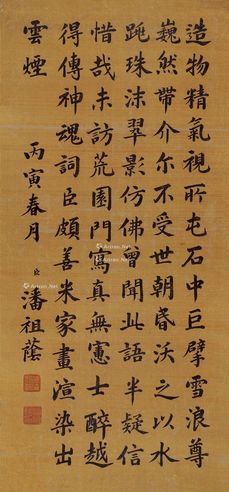 造物精氣視所屯石中巨擘雪浪尊
巍然帶介尔不受世朝昏沃之以水
跳珠沫翠影仿佛曾聞此語半疑信
惜哉未訪荒園門寫真無憲士醉越
得傳神魂詞臣頗善米家畫渲染出
雲煙
丙寅春月
臣潘祖蔭